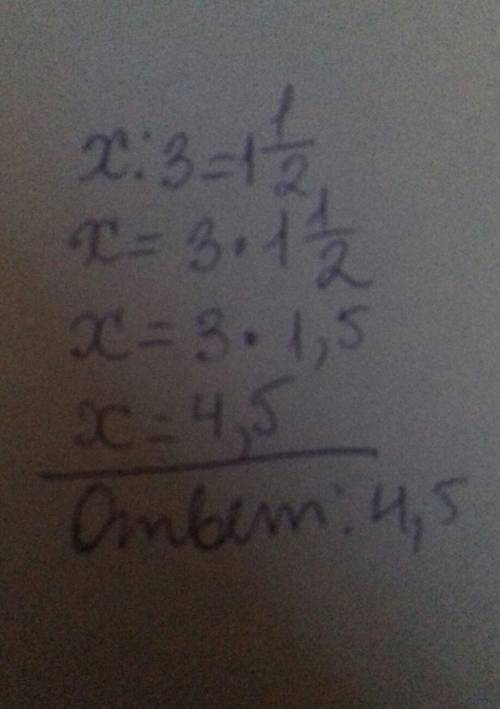 x:3=1 1/2
x=3·1 1/2
x=3·1,5
x=4,5
Ответ: 4,5